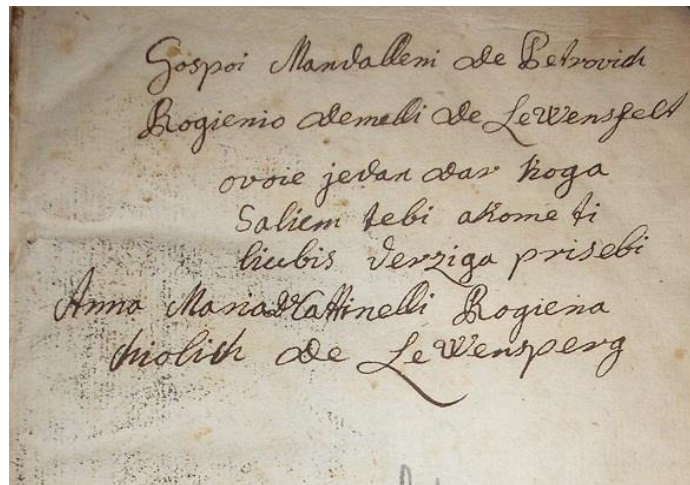 Gospoi Mandalleni de Petrovich
Rogienio Demelli de LeWensfelt
ovoie jedan dar koga
Saliem tebi akome ti
liubis derziga prisebi
Anna Maria Mattinelli Rogiena
chiolich de LeWensperg